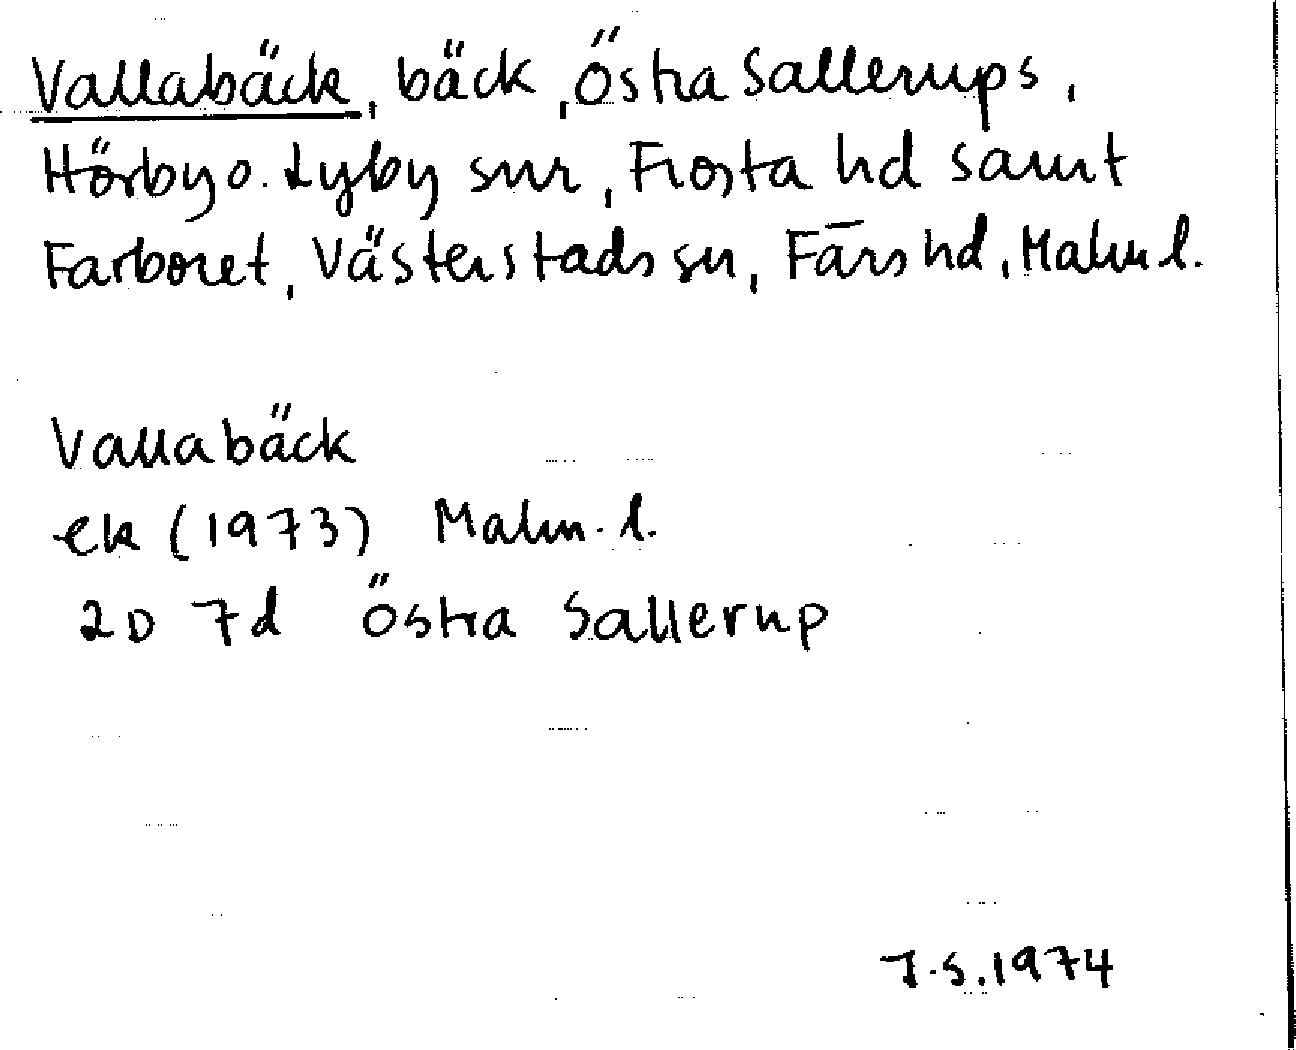 Vallabäck, bäck, Östra Sallerups,
Hörby o. Lyby snr, Frosta hd samt
Farboret, Västerstads sn, Färs hd, Malm l.
Vallabäck
ek (1973) Malm. l.
2D 7d Östra Sallerup
J.S. 1974